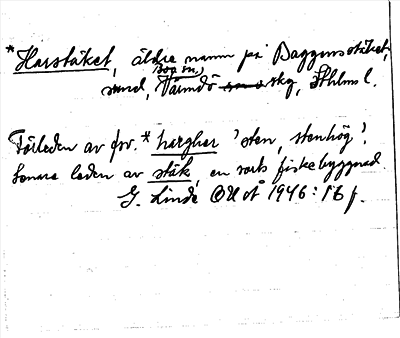 *Harstäket, äldre namn på Baggensstäket,
Boo sn,
sund, Värmdö skg, Sthlms l.
Förleden av fsv. *hargher 'sten, stenhög'.
Senare leden av stäk, en sorts fiskebyggnad.
G. Linde OUoÅ 1946: 16 f.